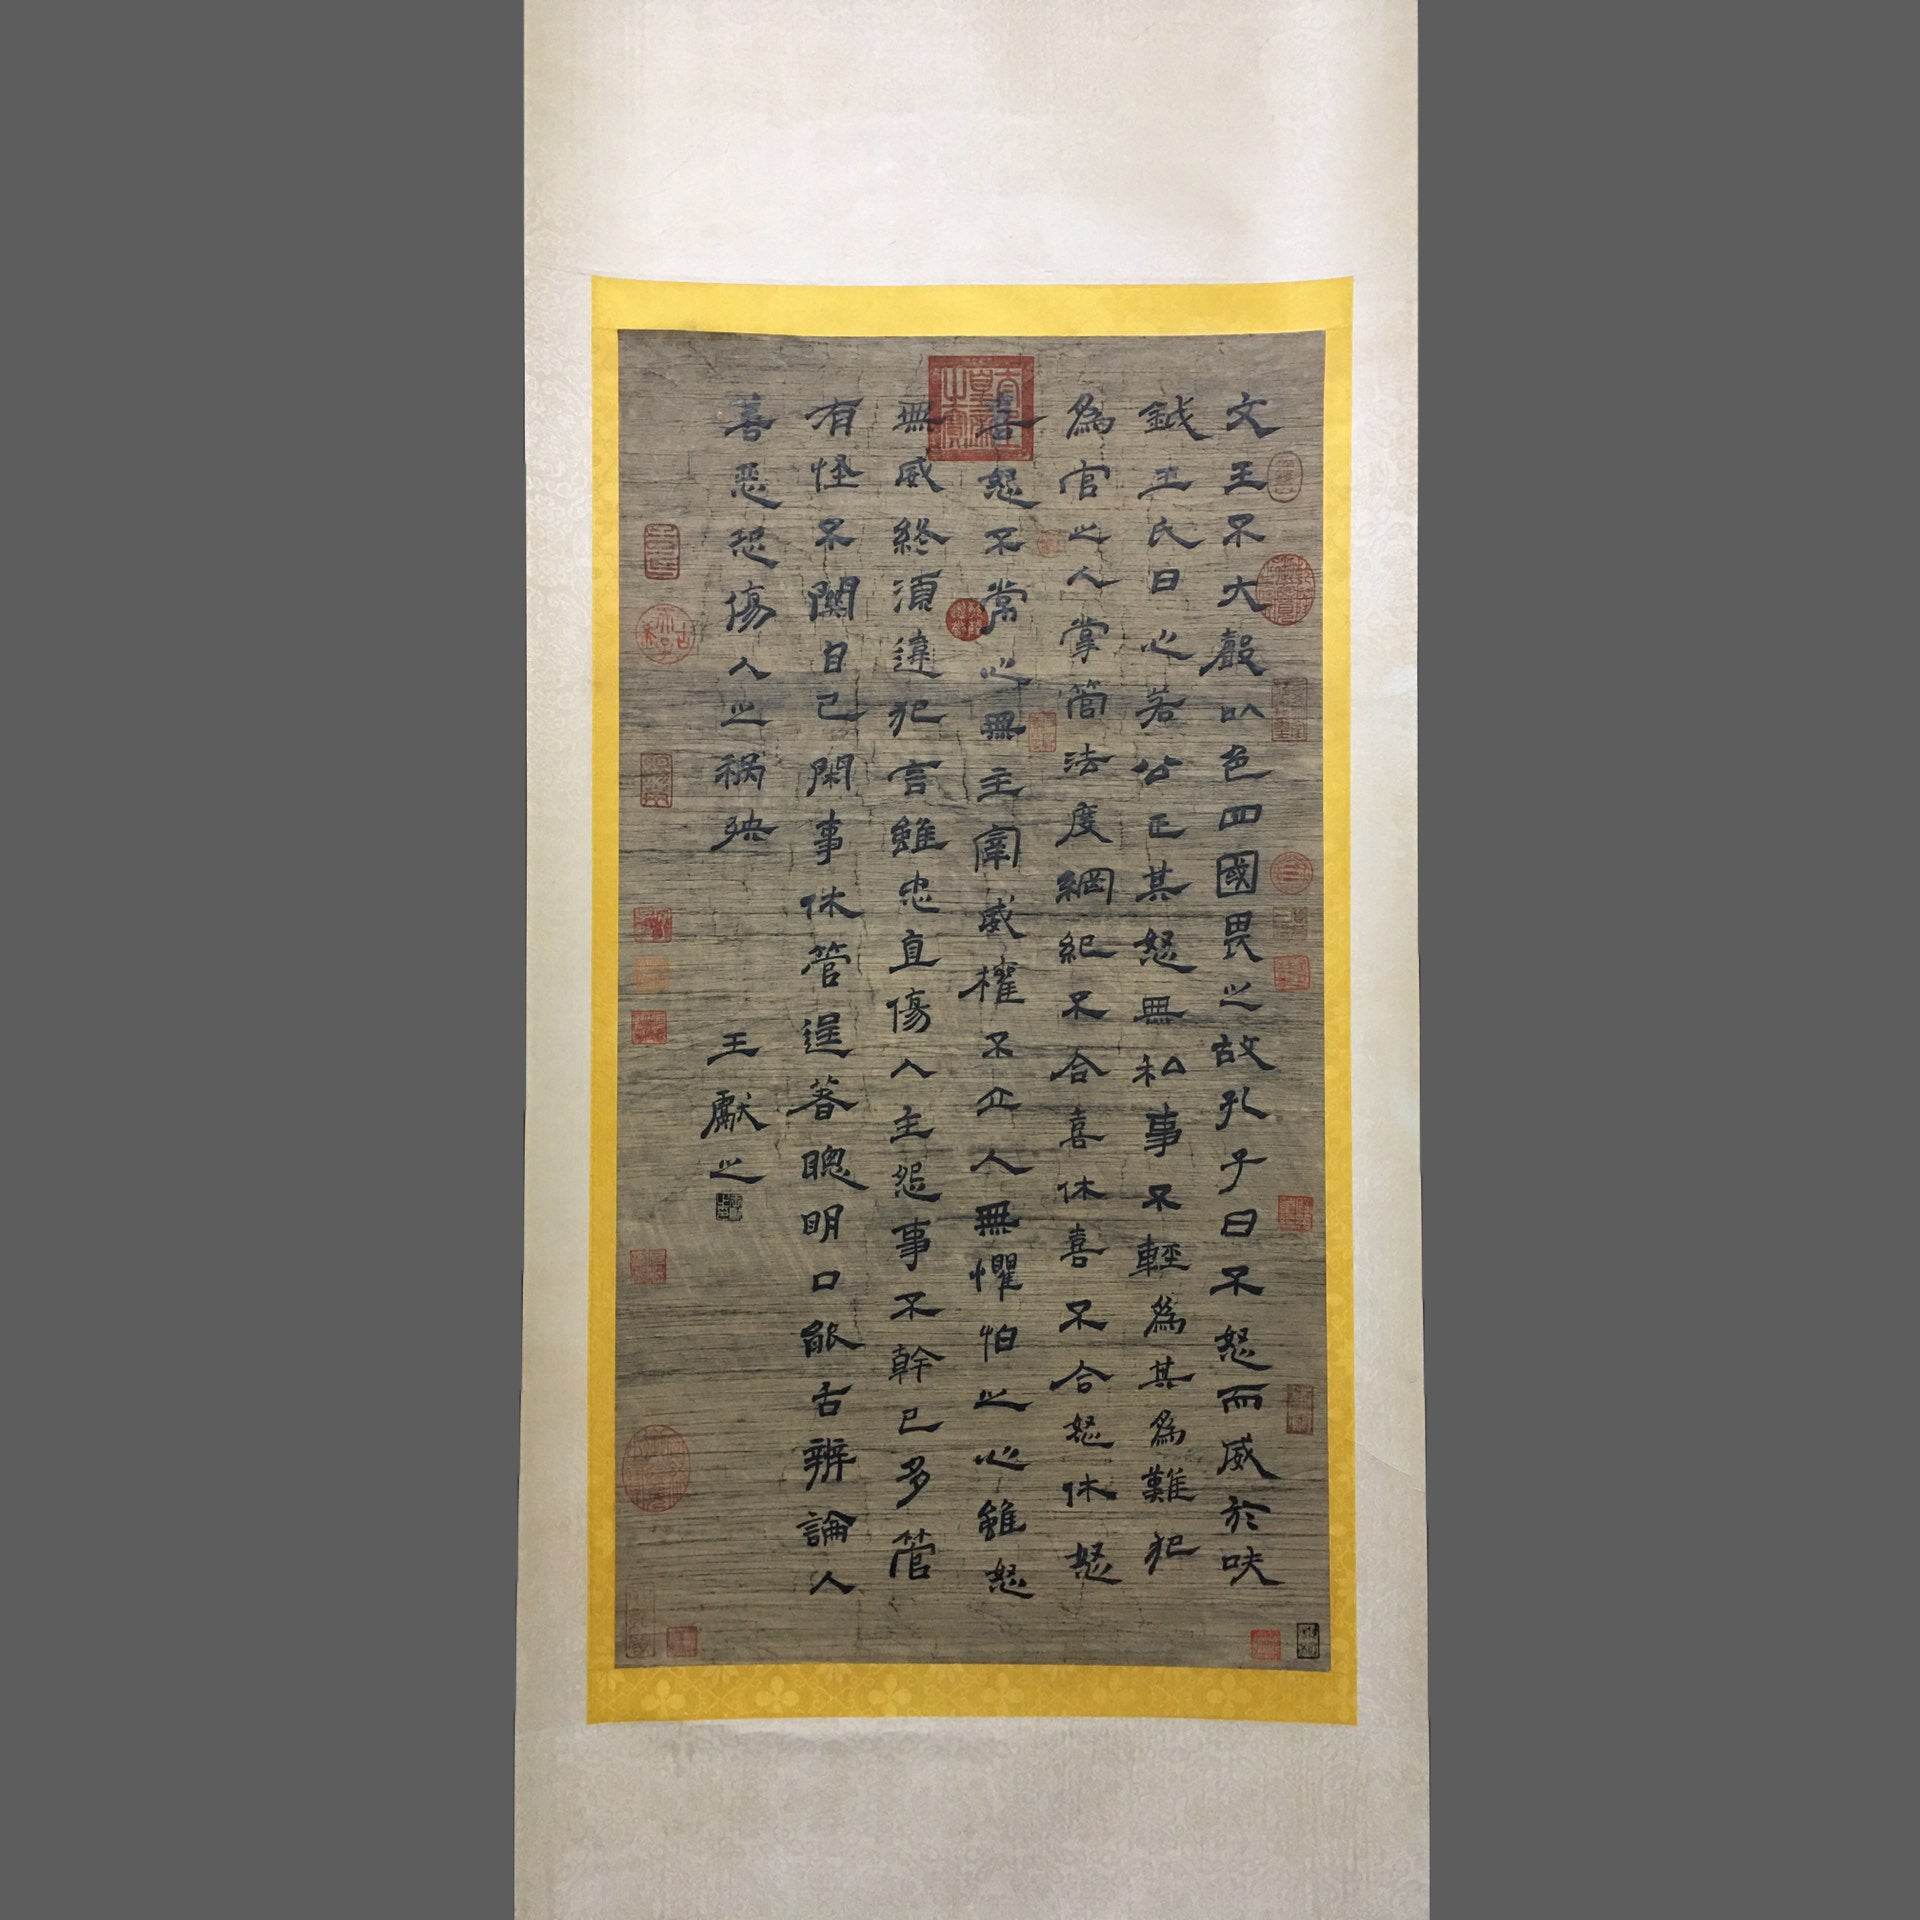 文王不大聲以色四國畏之故孔子曰不怒而威於鈇
鉞王氏曰心若公正其怒無私事不輕為其為難犯
為官之人掌管法度綱紀不合喜休喜不合怒休怒
喜怒不常心無主宰威權不立人無懼怕之心雖怒
無威終須違犯言雖忠直傷人主怨事不幹已多管
有怪不關自己閑事休管逞著聰明口能舌辨論人
善惡恐傷人之祸殃
王獻之